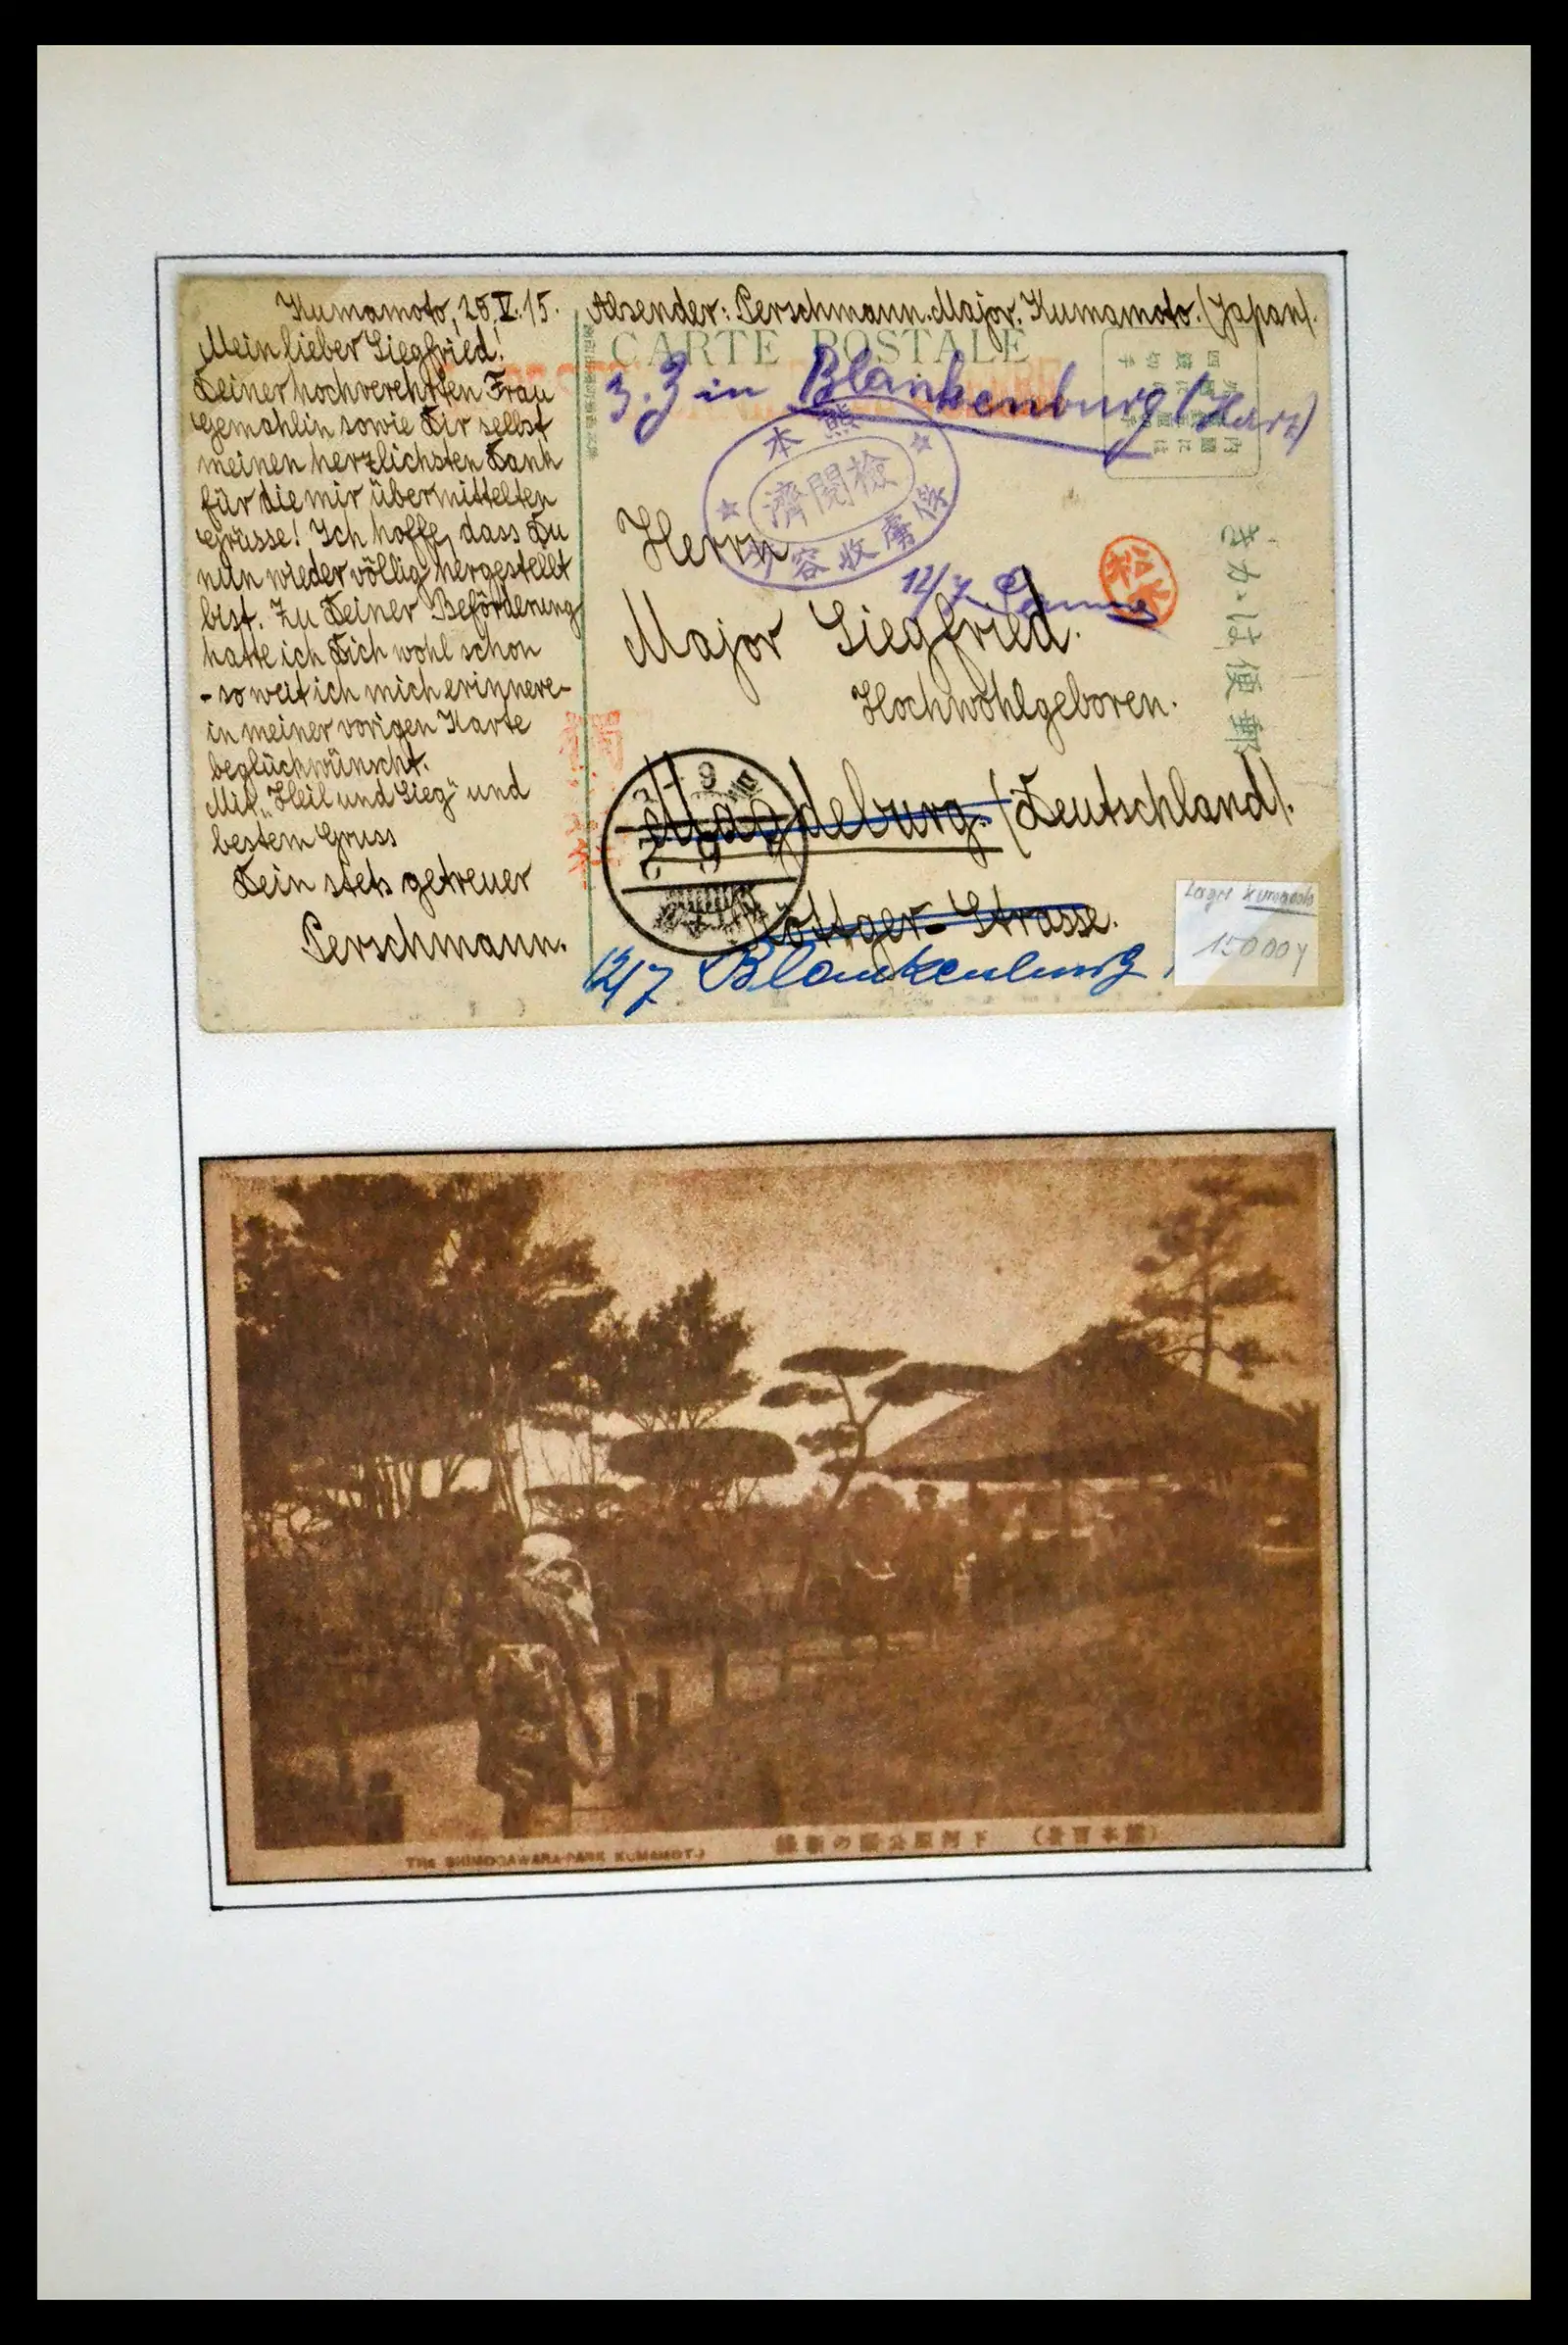 Kumamoto, 28.V.15.
Mein lieber Siegfried!
Deiner hochverehrten Frau
Gemahlin sowie Dir selbst
meinen herzlichsten Dank
für die mir übermittelten
Grüsse! Ich hoffe, dass Du
nun wieder völlig hergestellt
bist. Zu Deiner Beförderung
hatte ich Dich wohl schon
- so weit ich mich erinnere -
in meiner vorigen Karte
beglückwünscht.
Mit „Heil und Sieg“ und
bestem Gruss
Dein stets getreuer
Perschmann.
Absender: Perschmann. Major. Kumamoto. (Japan).
CARTE POSTALE
z. Z in Blankenburg (Harz)
熊本
俘虜收容所
檢閱濟
松木
きか・は便郵
Herrn
12/7
Major Siegfried.
Hochwohlgeboren.
Magdeburg. (Deutschland).
Röttger-Strasse.
12/7 Blankenburg
Lager Kumamoto
15000 Y
THE SHIMOGAWARA-PARK KUMAMOTO
下河原公園の新綠 (熊本百景)